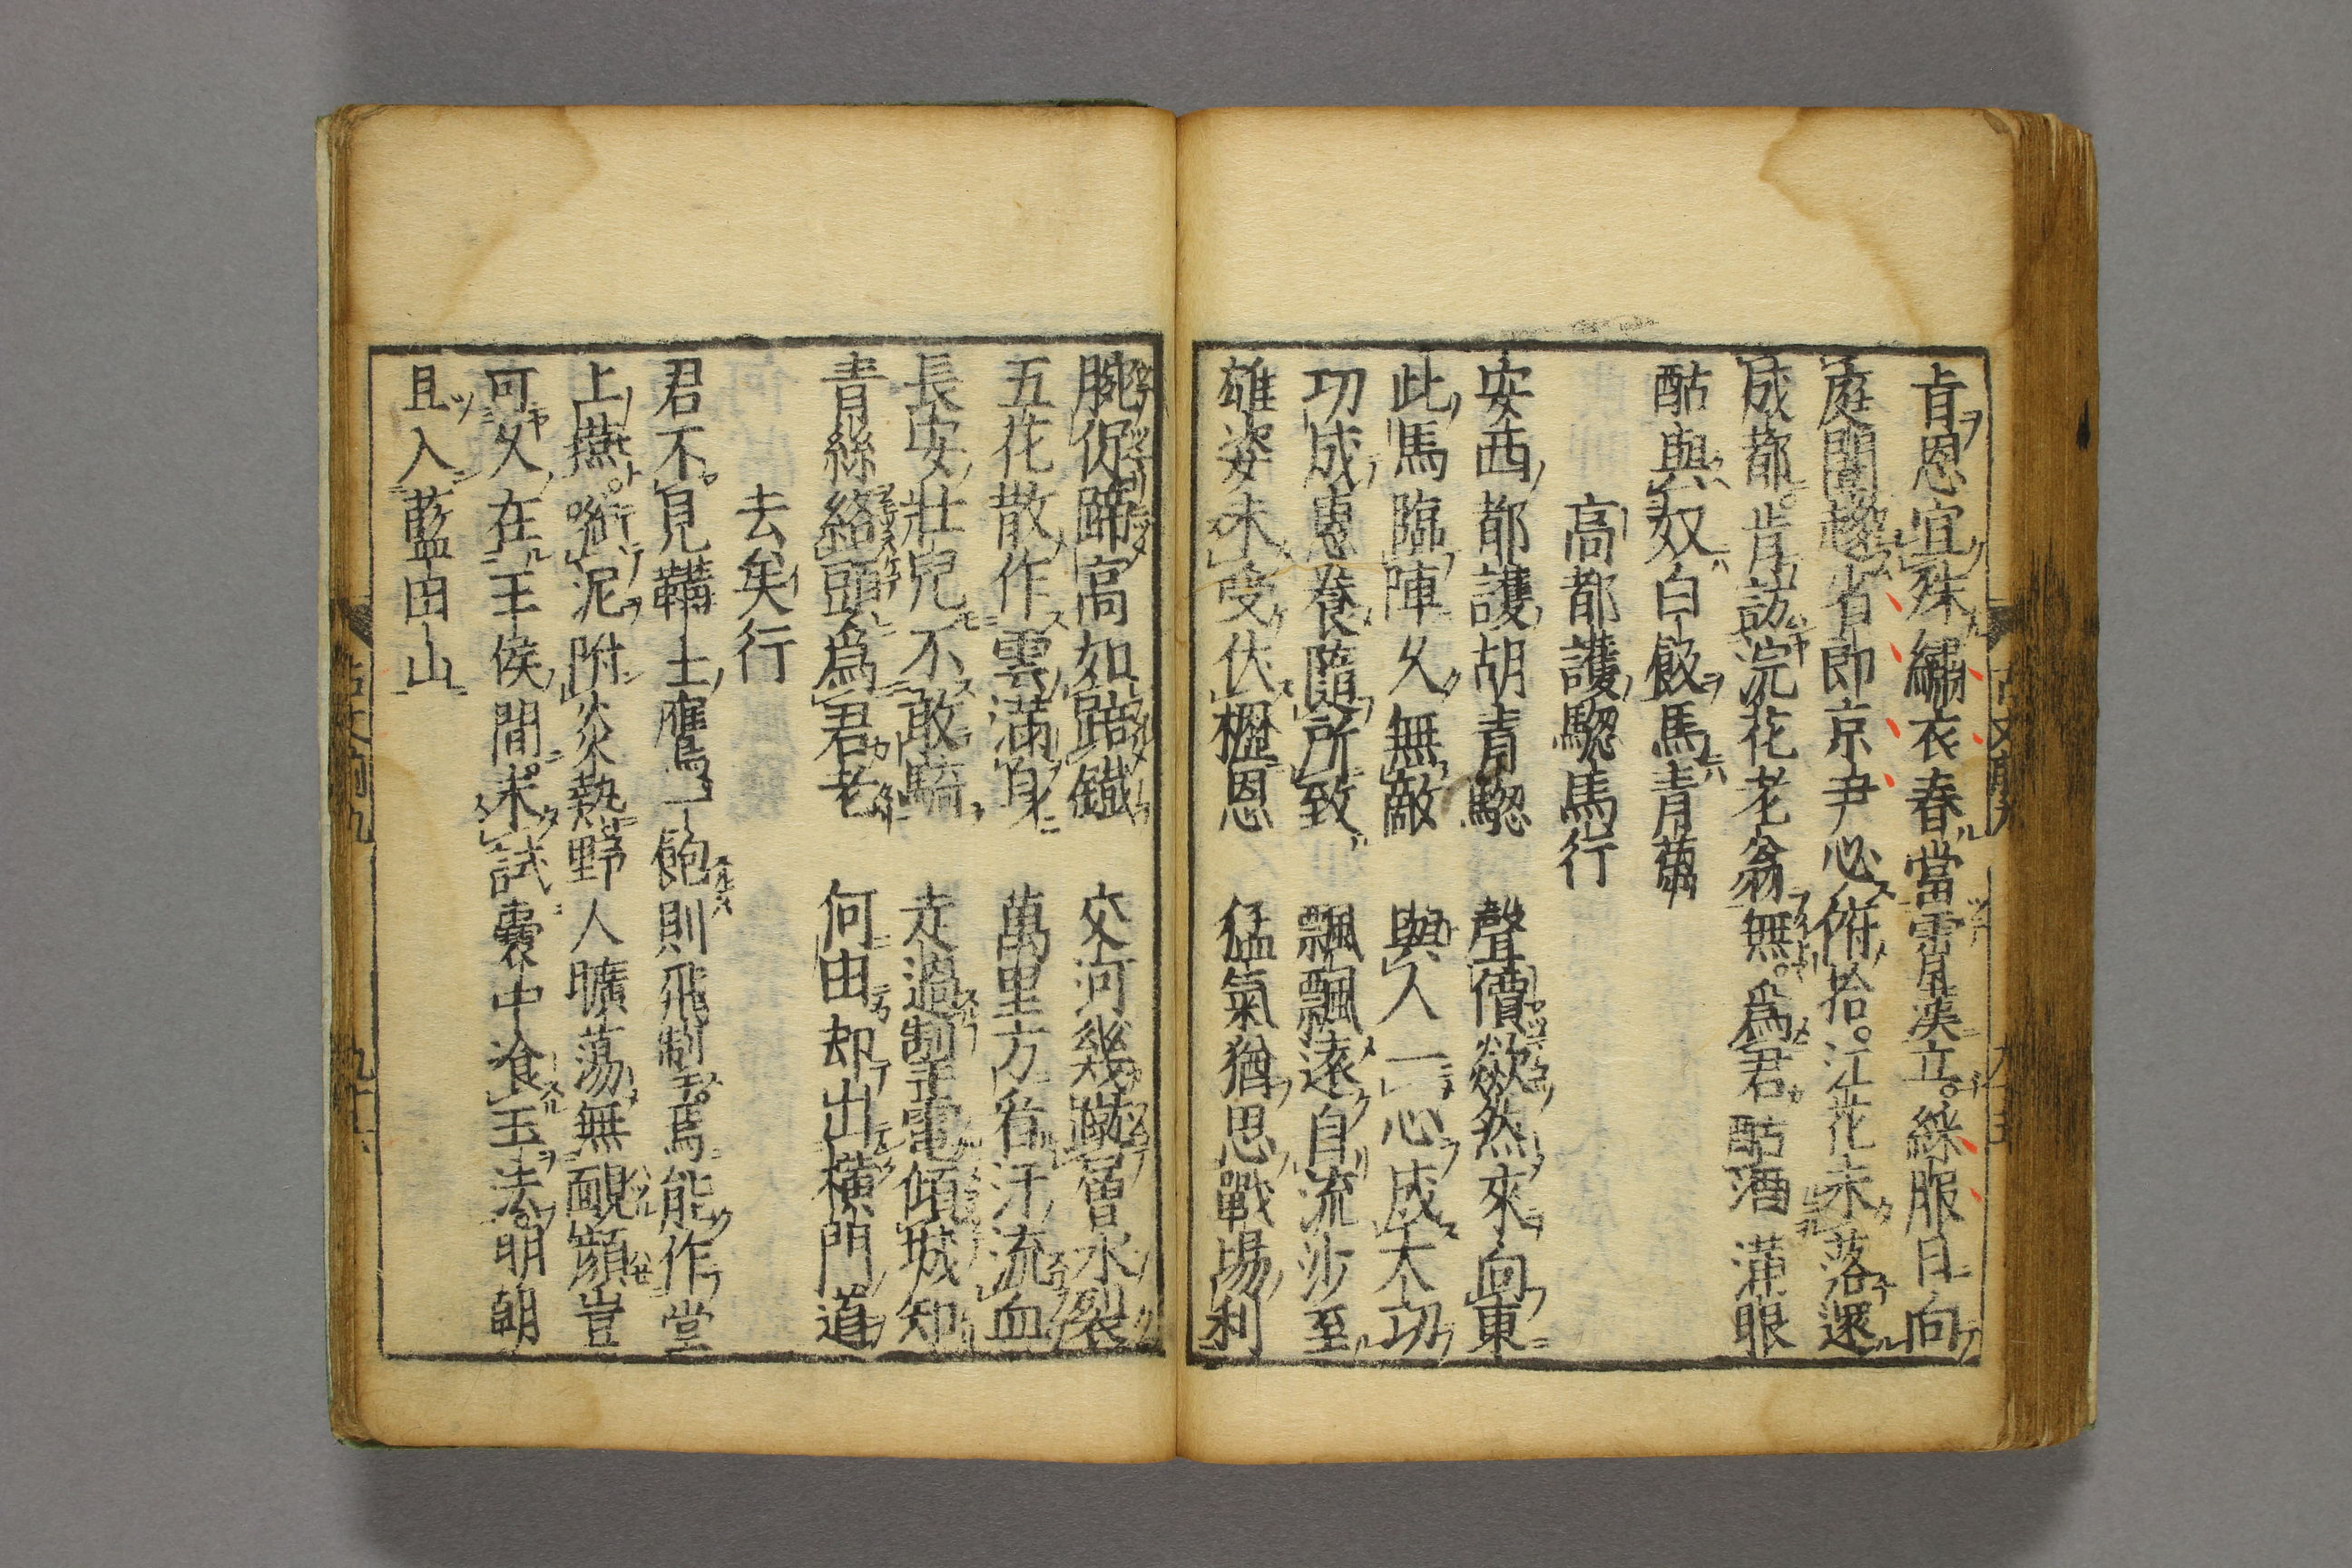 肯恩宜殊繡衣春當霄漢立。綵服日向
庭闈趨省郎京尹必俯拾。江花未落還
成都。肯訪浣花老翁無。爲君酤酒滿眼
酤與奴白飯馬青蒭
高都護驄馬行
安西都護胡青驄 聲價欻然來向東
此馬臨陣久無敵 與人一心成大功
功成惠養隨所致 飄飄遠自流沙至
雄姿未受伏櫪恩 猛氣猶思戰場利
腕促蹄高如踣鐡 交河幾蹴曾氷裂
五花散作雲滿身 萬里方看汗流血
長安壯兒不敢騎 走過掣電傾城知
青絲絡頭爲君老 何由却出横門道
去矣行
君不見鞲上鷹一飽則飛掣。焉能作堂
上燕。啣泥附炎熱野人曠蕩無靦顔豈
可久在王侯間。未試囊中飡玉法。明朝
且入藍田山